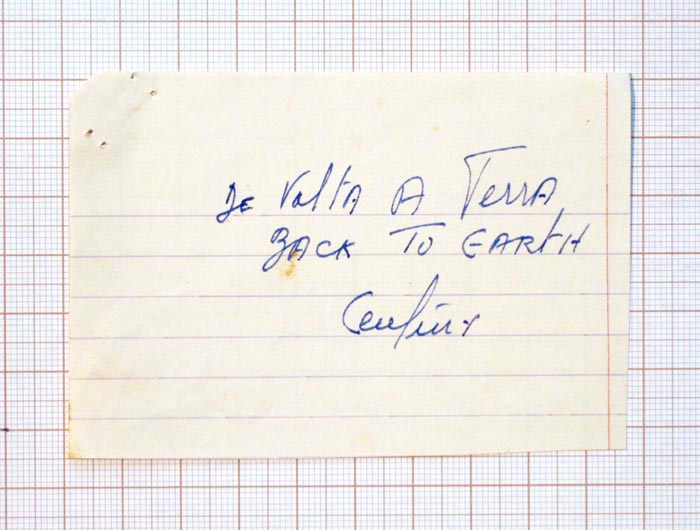 De Volta A Terra
BACK To EARTH